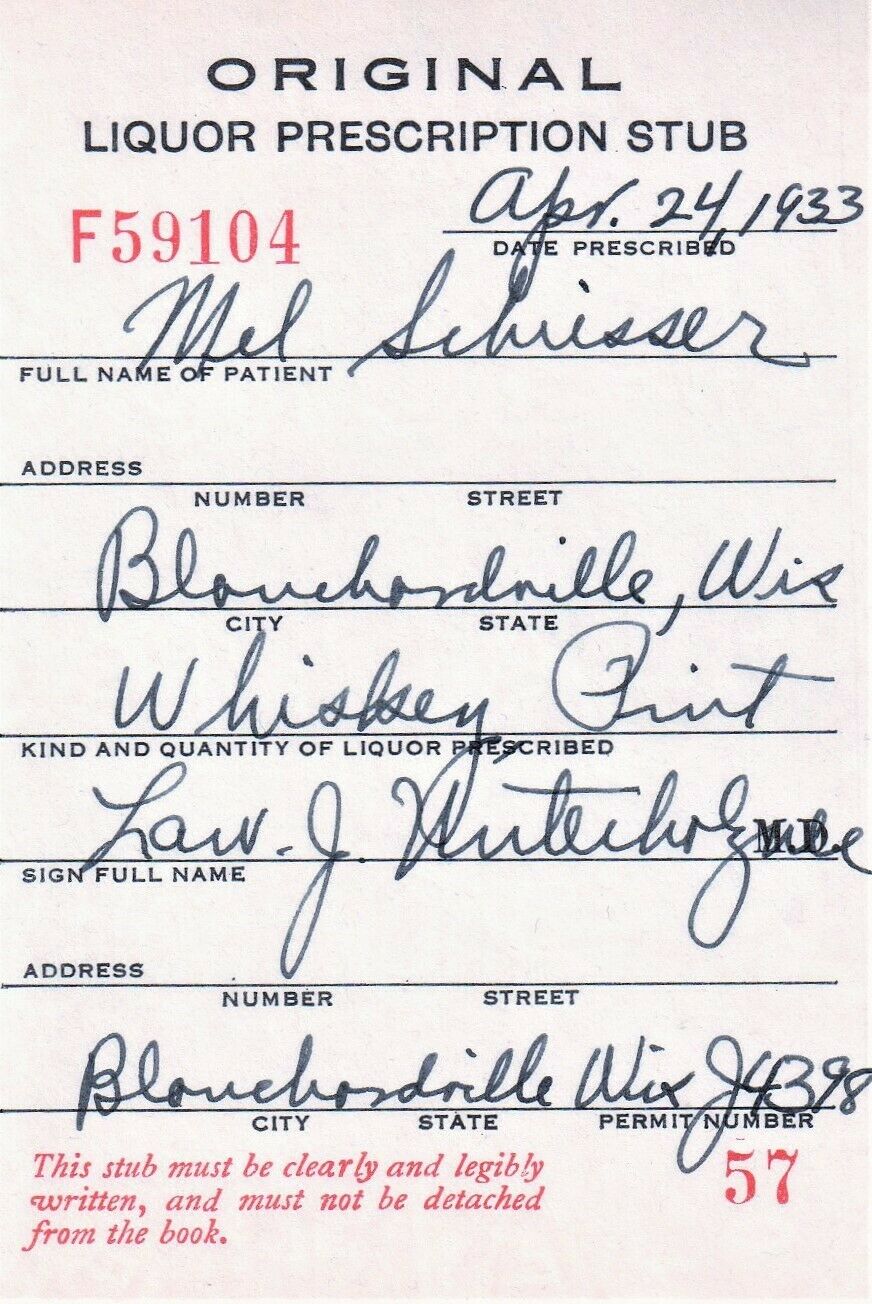 ORIGINAL
LIQUOR PRESCRIPTION STUB
F59104
Apr. 24, 1933
DATE PRESCRIBED
Mel
FULL NAME OF PATIENT
ADDRESS
NUMBER STREET
Blanchardville, Wis
CITY STATE
Whiskey Pint
KIND AND QUANTITY OF LIQUOR PRESCRIBED
Law. J. M.D.
SIGN FULL NAME
ADDRESS
NUMBER STREET
Blanchardville Wis J4398
CITY STATE PERMIT NUMBER
This stub must be clearly and legibly
written, and must not be detached
from the book.
57